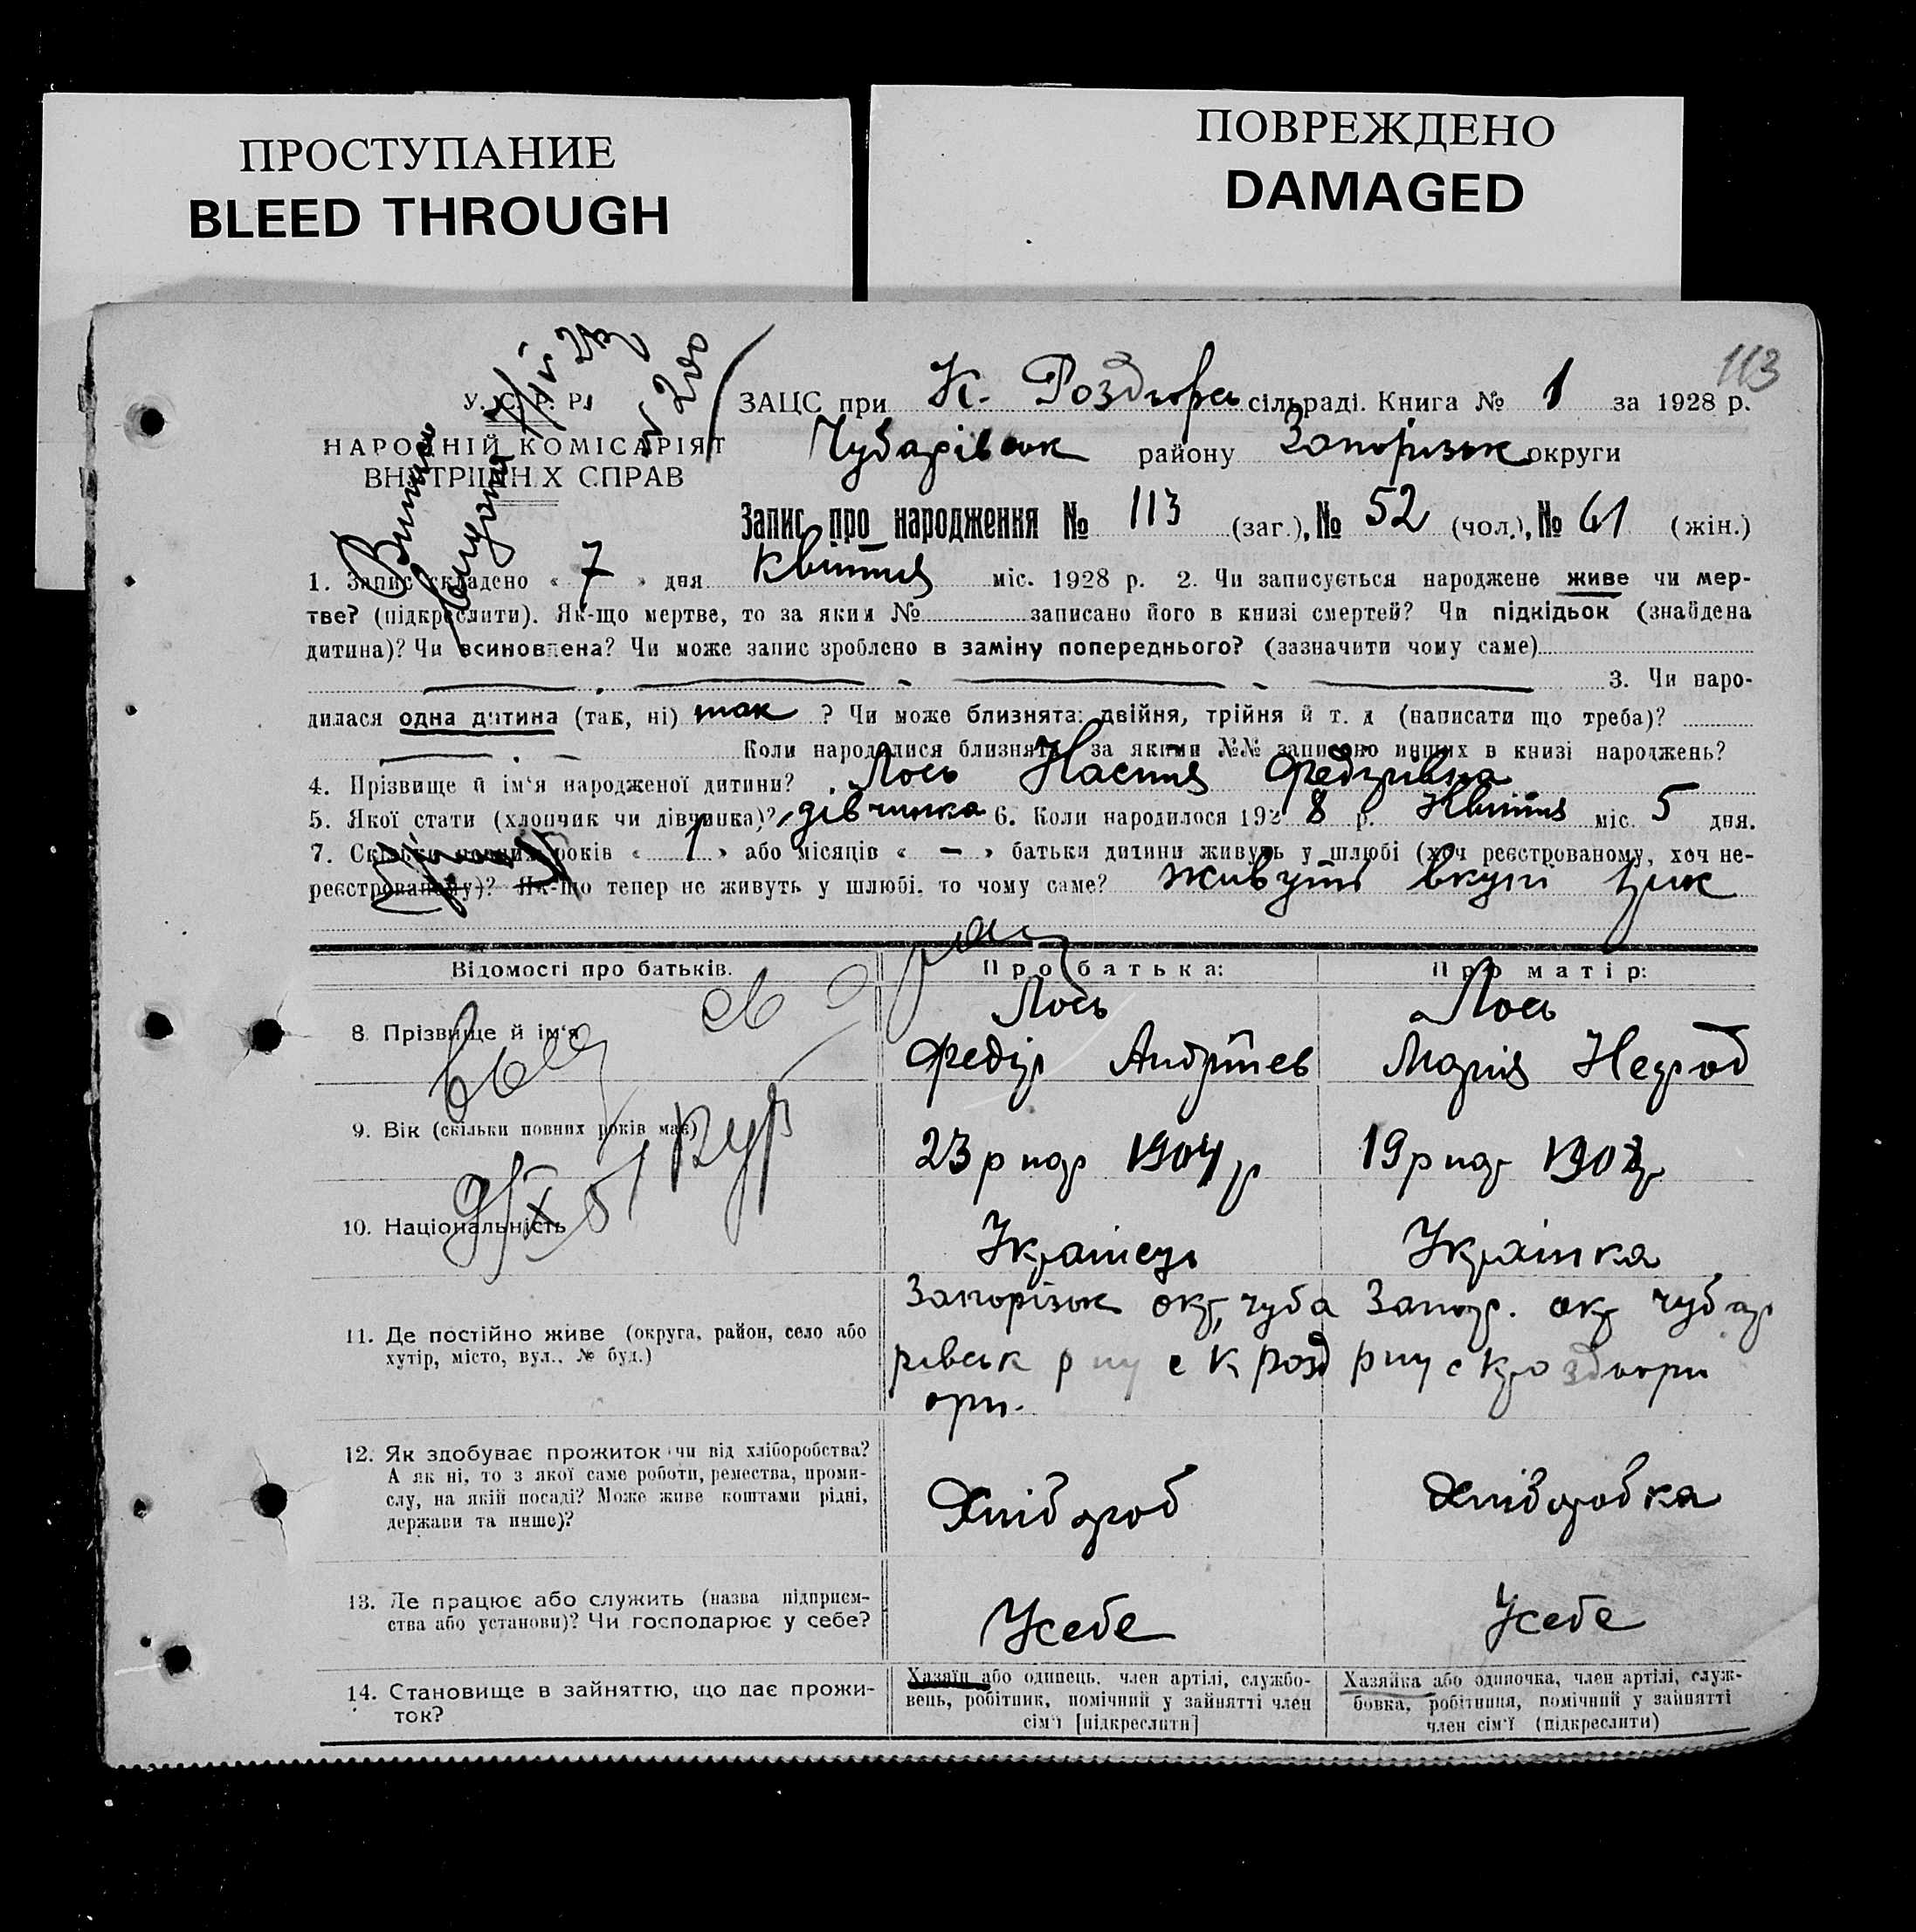 ПРОСТУПАНИЕ
BLEED THROUGH
ПОВРЕЖДЕНО
DAMAGED
113
У. С. Р. Р.
НАРОДНІЙ КОМІСАРІЯТ
ВНУТРІШН Х СПРАВ
ЗАЦС при К. Роздори сільраді. Книга № 1 за 1928 р.
Чубарівськ району Запорізьк округи
Запис про народження № 113 (заг.), № 52 (чол.), № 61 (жін.)
1. Запис складено « 7 » дня квітня міс. 1928 р. 2. Чи записується народжене живе чи мер-
тве? (підкреслити). Як-що мертве, то за яким № записано його в книзі смертей? Чи підкідьок (знайдена
дитина)? Чи всиновлена? Чи може запис зроблено в заміну попереднього? (зазначити чому саме)
3. Чи наро-
дилася одна дитина (так, ні) так ? Чи може близнята: двійня, трійня й т. д (написати що треба)?
Коли народилися близнята, за якими №№ записано инших в книзі народжень?
4. Прізвище й ім'я народженої дитини? Лось Настя Федорівна
5. Якої стати (хлопчик чи дівчинка)? дівчинка 6. Коли народилося 192 8 р. Квітня міс. 5 дня.
7. Скільки повних років « 1 » або місяців « — » батьки дитини живуть у шлюбі (хоч реєстрованому, хоч не-
реєстрованому)? Як-що тепер не живуть у шлюбі, то чому саме? живуть вкупі
Відомості про батьків.
Про батька:
Про матір:
8. Прізвище й ім'я
Лось
Федір Андрієв
Лось
Марія
9. Вік (скільки повних років має)
23 р нар 1904 р
19 р нар
10. Національність
Українець
Українка
11. Де постійно живе (округа, район, село або
хутір, місто, вул., № буд.)
Запорізьк окр, чуба
рівськ р ну с К розд
ори.
Запор. окр чубар
р ну с К роздори
12. Як здобуває прожиток чи від хліборобства?
А як ні, то з якої саме роботи, ремества, проми-
слу, на якій посаді? Може живе коштами рідні,
держави та инше)?
Хлібороб
Хліборобка
13. Де працює або служить (назва підприєм-
ства або установи)? Чи господарює у себе?
Усебе
Усебе
14. Становище в зайняттю, що дає прожи-
ток?
Хазяїн або одинець, член артілі, службо-
вець, робітник, помічний у зайнятті член
сім'ї [підкреслити]
Хазяйка або одиночка, член артілі, служ-
бовка, робітниця, помічний у зайнятті
член сім'ї (підкреслити)